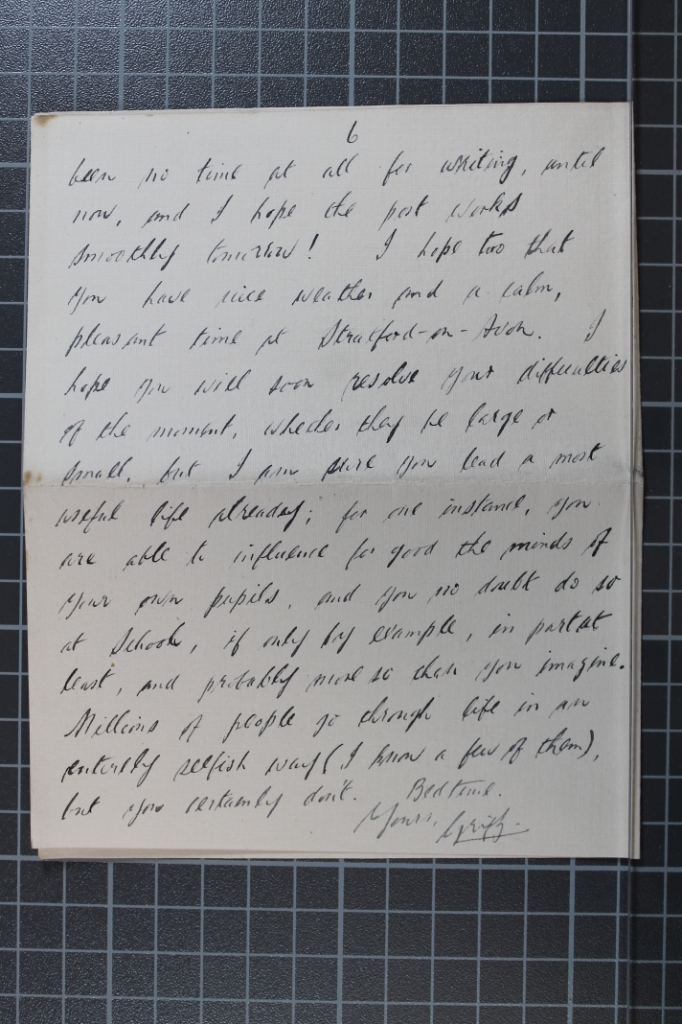 6
been no time at all for writing, until
now, and I hope the post works
smoothly tomorrow! I hope too that
you have nice weather and a calm,
pleasant time at Stratford-on-Avon. I
hope you will soon resolve your difficulties
of the moment, whether they be large or
small, but I am sure you lead a most
useful life already; for one instance, you
are able to influence for good the minds of
your own pupils, and you no doubt do so
at School, if only by example, in part at
least, and probably more so than you imagine.
Millions of people go through life in an
entirely selfish way (I know a few of them),
but you certainly don't. Bedtime.
Yours, Griff.